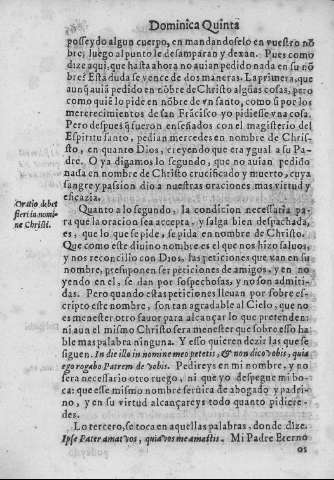 Dominica Quinta
posseydo algun cuerpo, en mandandoselo en vuestro nõ-
bre, luego al punto le desamparan y dexan. Pues como
dize aqui, que hasta ahora no auian pedido nada en su nõ
bre? Esta duda se vence de dos maneras. La primera, que
aunq̃ auiã pedido en nõbre de Christo algũas cosas, pero
como quiẽ lo pide en nõbre de vn santo, como si por los
merecimientos de san Frãcisco yo pidiesse vna cosa.
Pero despues q̃ fueron enseñados con el magisterio del
Espiritu santo, pedian mercedes en nombre de Chris-
to, en quanto Dios, creyendo que era ygual a su Pa-
dre. O ya digamos lo segundo, que no auian pedido
nada en nombre de Christo crucificado y muerto, cuya
sangre y passion dio a nuestras oraciones mas virtud y
eficazia.
Oratio debet
fieri in nomi-
ne Christi.
Quanto a lo segundo, la condicion necessaria pa-
ra que la oracion sea accepta, y salga bien despachada,
es, que lo que se pide, se pida en nombre de Christo.
Que como este diuino nombre es el que nos hizo saluos,
y nos reconcilio con Dios, las peticiones que van en su
nombre, presuponen ser peticiones de amigos, y en no
yendo en el, se dan por sospechosas, y no son admiti-
das. Pero quando estas peticiones lleuan por sobre es-
cripto este nombre, son tan agradable al Cielo, que no
es menester otro fauor para alcançar lo que pretenden:
ni aun el mismo Christo sera menester que sobre esso ha
ble mas palabra ninguna. Y esso quieren dezir las que se
siguen. In die illo in nomine meo petetis, & non dico vobis, quia
ego rogabo Patrem de vobis. Pedireys en mi nombre, y no
sera necessario otro ruego, ni que yo despegue mi bo-
ca: que esse mismo nombre seruira de abogado, y padri-
no, y en su virtud alcançareys todo quanto pidiere-
des.
Lo tercero, se toca en aquellas palabras, donde dize.
Ipse Pater amat vos, quia vos me amastis. Mi Padre Eterno
os